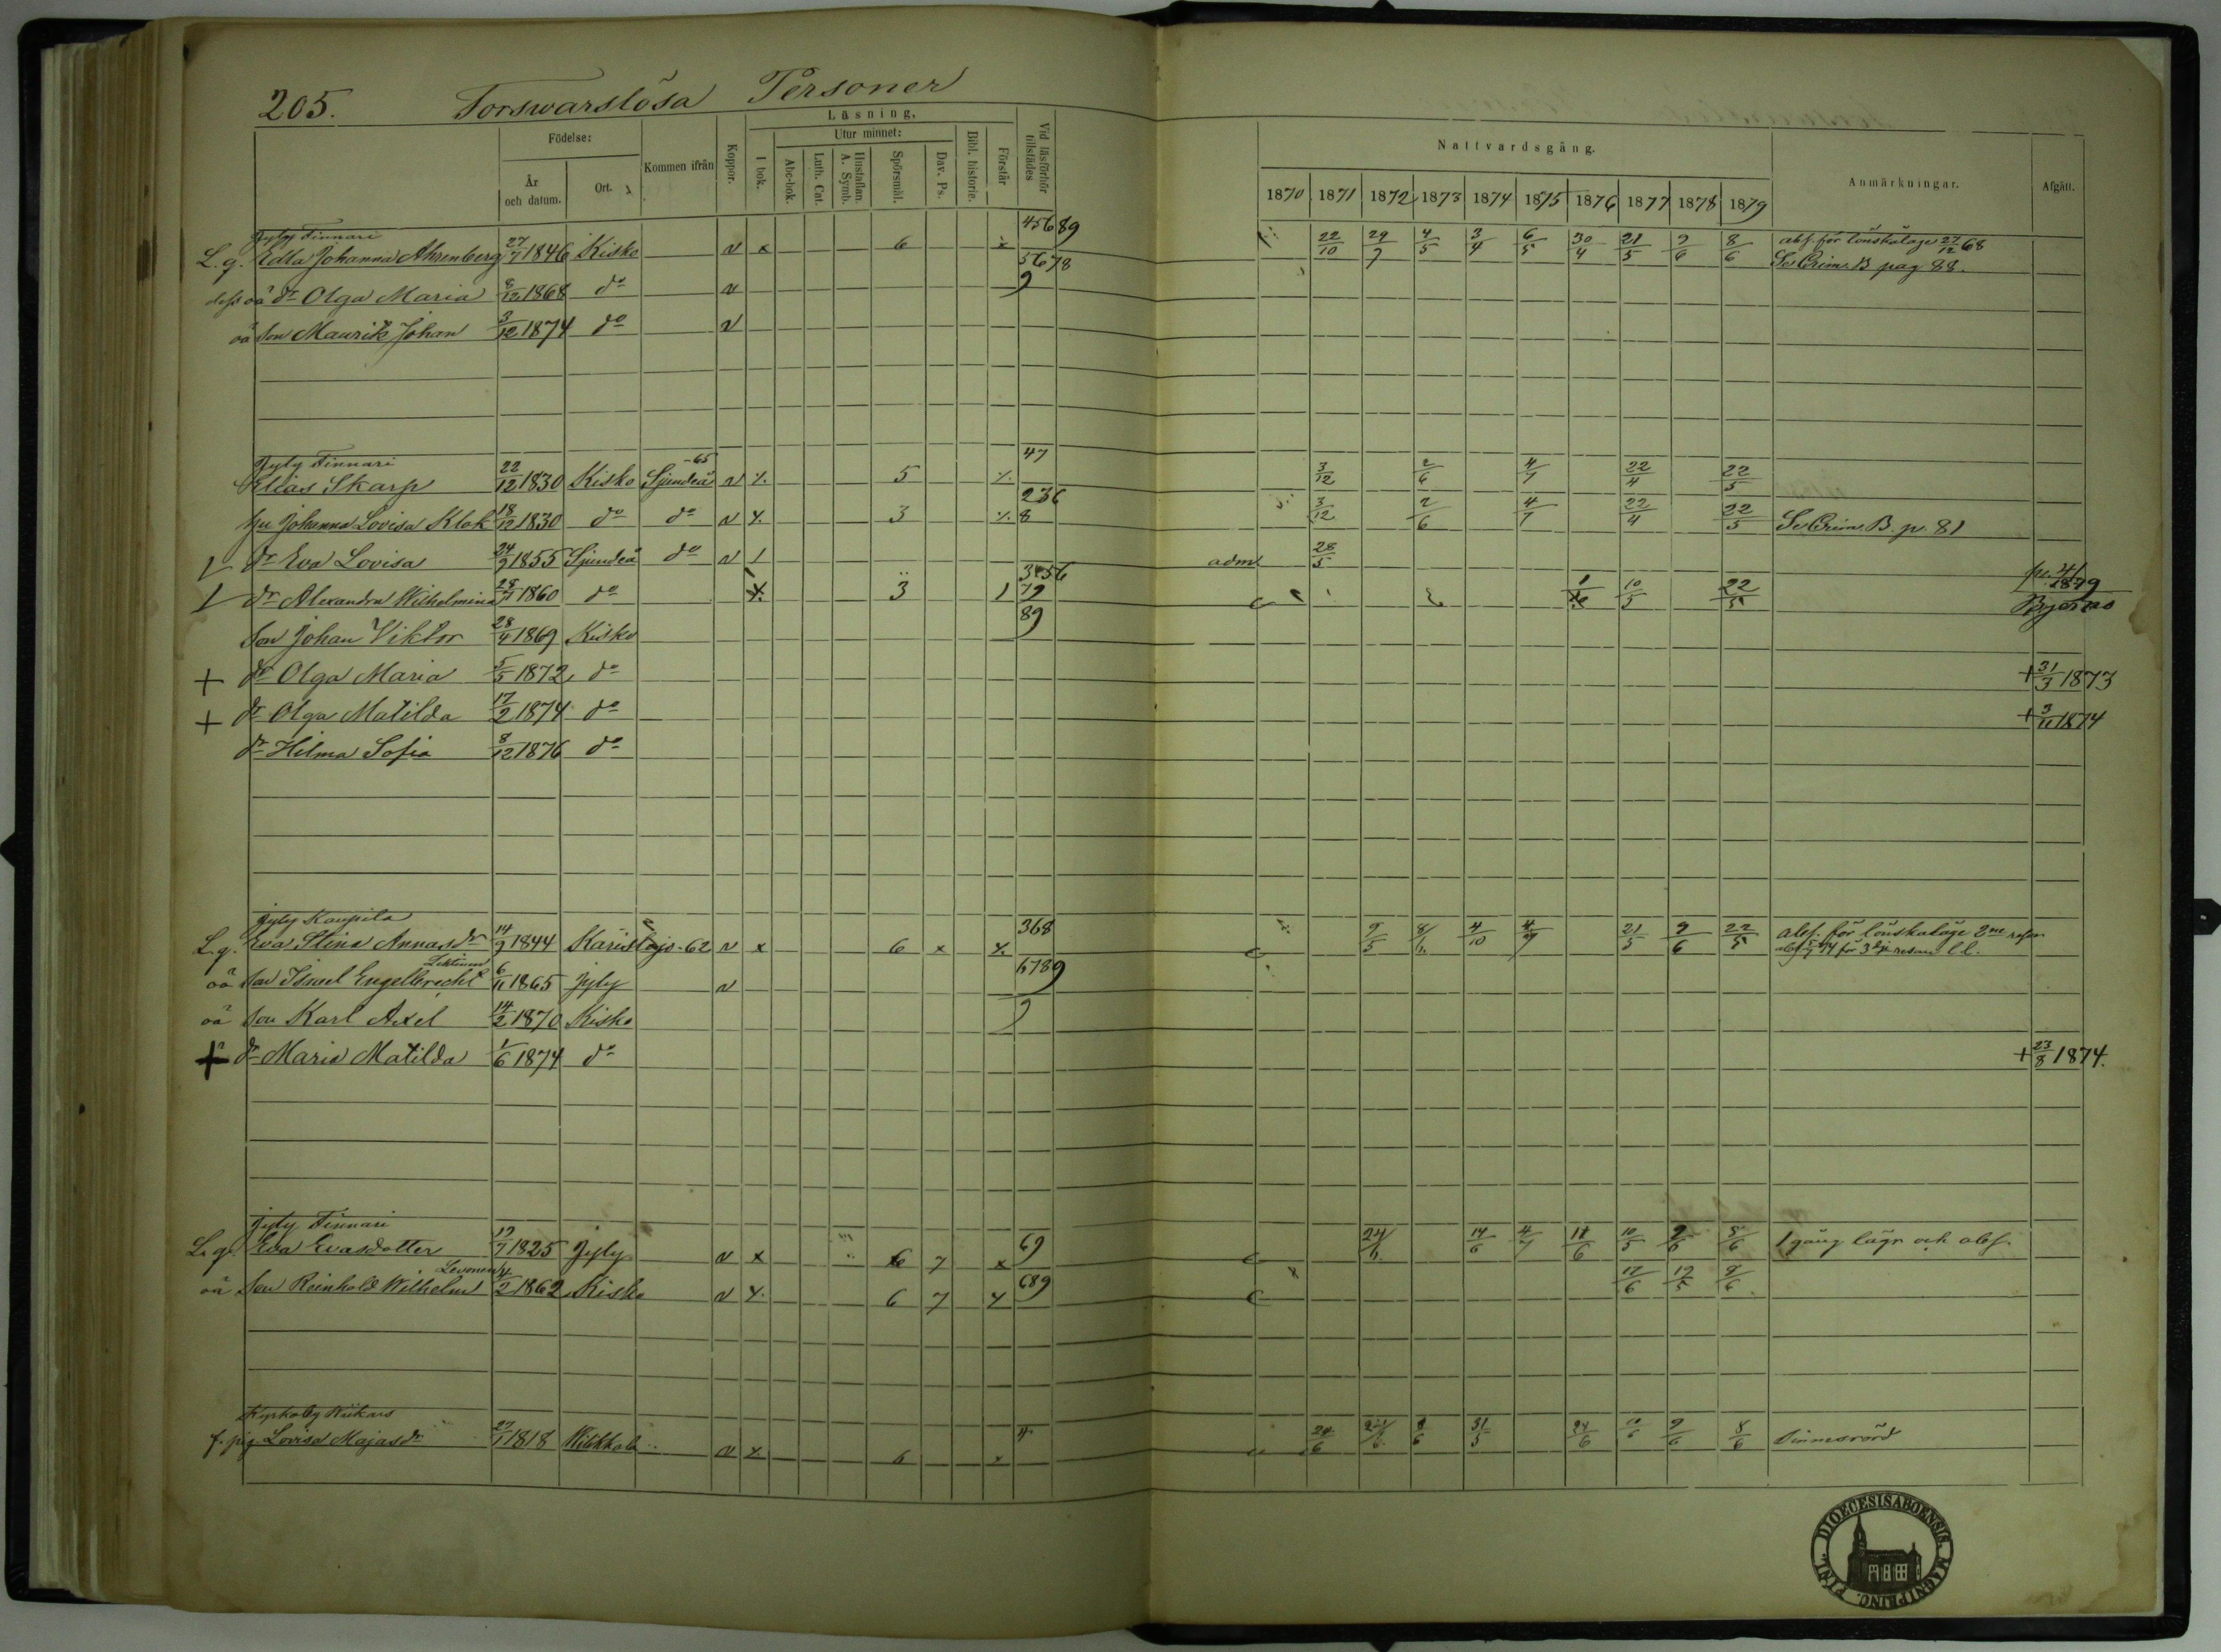 205. Forswarslösa Personer
Födelse:
År och datum.
Ort.
Kommen ifrån
Koppor.
Läsning,
I bok.
Utur minnet:
Abc-bok.
Luth. Cat.
Hustaflan.
A. Symb.
Spörsmål.
Dav. Ps.
Bibl. historie.
Förstår
Vid läsförhör tillstädes
Nattvardsgång.
1870 1871 1872 1873 1874 1875 1876 1877 1878 1879
Anmärkningar.
Afgått.
Jyly Finnari 45689
L. q. Edla Johanna Ahrenberg 27/7 1846 Kisko v x 6 x 22/10 29/7 4/5 3/4 6/5 30/4 21/5 9/6 8/6 abs. för lönskaläge 27/12 68
5678 Se Crim. B pag 88.
dess oä dr Olga Maria 8/12 1868 do v 9
oä son Maurik Johan 3/12 1874 do v
Jyly Finnari -65 47
Elias Skarp 22/12 1830 Kisko Sjundeå v 5 3/12 2/6 4/7 22/4 22/5
236
hu Johanna Lovisa Klok 18/12 1830 do do v 3 8 3/12 2/6 4/7 22/4 22/5 Se Crim. B. p. 81
dr Eva Lovisa 24/9 1855 Sjundeå do v 1 adm. 28/5
3456
dr Alexandra Wilhelmina 28/7 1860 do 3 1 79 10/5 22/5 1879 Bjerno
Son Johan Viktor 28/4 1869 Kisko 89
+ dr Olga Maria 5/5 1872 do + 31/3 1873
+ dr Olga Matilda 17/2 1874 do + 3/11 1874
dr Hilma Sofia 8/12 1876 do
Jyly Kaupila 368
L. q. Eva Stina Annasdr 14/9 1844 Karislojo -62 v x 6 x 9/5 8/6 4/10 4/7 21/5 9/6 22/5 abs. för lönskaläge 2ne resor
för 3dje resan l.l.
6789
oä son Israel Engelbrecht 6/11 1865 Jyly v
oä son Karl Axel 14/2 1870 Kisko 9
+ dr Maria Matilda 1/6 1874 do + 23/8 1874.
Jyly Finnari
L. q. Eva Evasdotter 17/7 1825 Jyly v x 6 7 x 69 24/6 14/6 4/7 18/6 10/5 9/6 8/6 1 gång lägr och abs.
Levonen
oä son Reinhold Wilhelm 4/2 1862 Kisko v 6 7 689 17/6 19/5 8/6
Kyrkoby Wikars
f. pig. Lovisa Majasdr 27/1 1818 v 6 x 24/6 24/6 8/6 31/5 24/6 9/6 8/6 Sinnesrörd
FINL. DIOECESIS ABOENSIS. MAGNI PRINC.